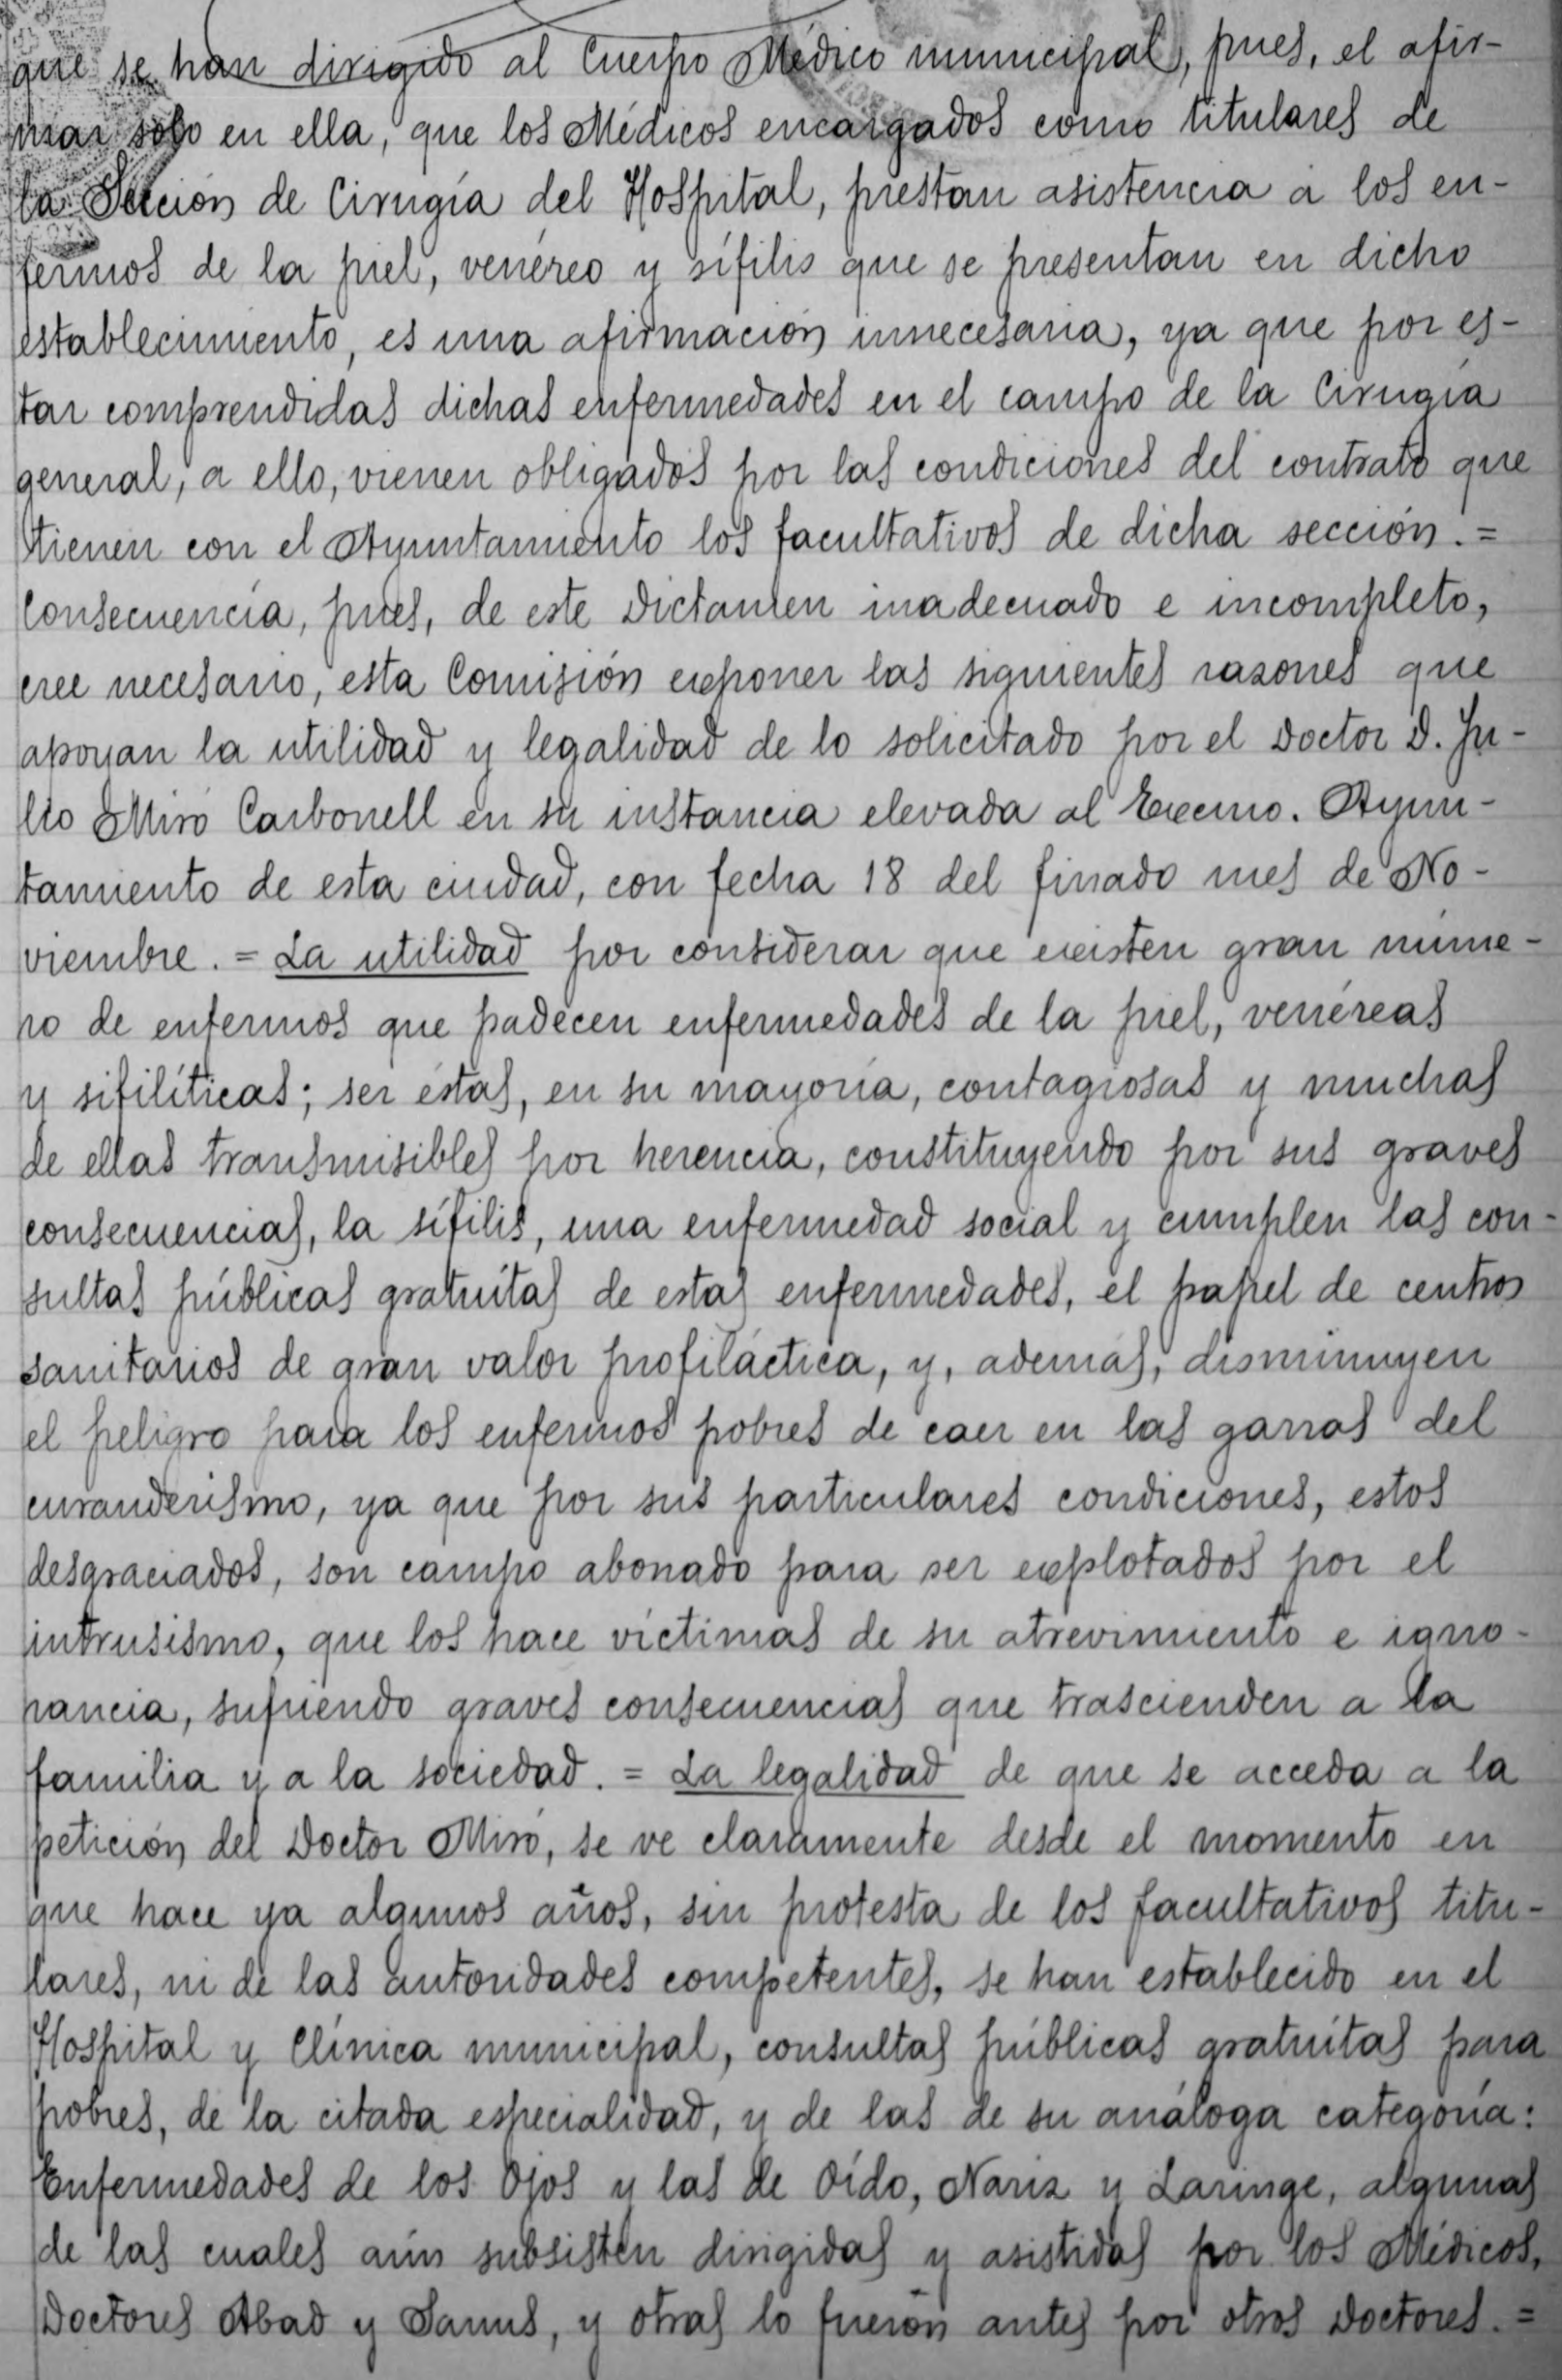 que se han dirigido al Cuerpo Médico municipal, pues, el afir-
mar solo en ella, que los Médicos encargados como titulares de
la Sección de Cirugía del Hospital, prestan asistencia a los en-
fermos de la piel, venéreo y sífilis que se presentan en dicho
establecimiento, es una afirmación innecesaria, ya que por es-
tar comprendidas dichas enfermedades en el campo de la Cirugía
general, a ello, vienen obligados por las condiciones del contrato que
tienen con el Ayuntamiento los facultativos de dicha sección. =
Consecuencia, pues, de este Dictamen inadecuado e incompleto,
cree necesario, esta Comisión exponer las siguientes razones que
apoyan la utilidad y legalidad de lo solicitado por el Doctor D. Ju-
lio Miró Carbonell en su instancia elevada al Excmo. Ayun-
tamiento de esta ciudad, con fecha 18 del finado mes de No-
viembre. = La utilidad por considerar que existen gran núme-
ro de enfermos que padecen enfermedades de la piel, venéreas
y sifilíticas; ser éstas, en su mayoría, contagiosas y muchas
de ellas transmisibles por herencia, constituyendo por sus graves
consecuencias, la sífilis, una enfermedad social y cumplen las con-
sultas públicas gratuítas de estas enfermedades, el papel de centros
sanitarios de gran valor profiláctica, y, además, disminuyen
el peligro para los enfermos pobres de caer en las garras del
curanderismo, ya que por sus particulares condiciones, estos
desgraciados, son campo abonado para ser explotados por el
intrusismo, que los hace víctimas de su atrevimiento e igno-
rancia, sufriendo graves consecuencias que trascienden a la
familia y a la sociedad. = La legalidad de que se acceda a la
petición del Doctor Miró, se ve claramente desde el momento en
que hace ya algunos años, sin protesta de los facultativos titu-
lares, ni de las autoridades competentes, se han establecido en el
Hospital y Clínica municipal, consultas públicas gratuítas para
pobres, de la citada especialidad, y de las de su análoga categoría:
Enfermedades de los Ojos y las de Oído, Nariz y Laringe, algunas
de las cuales aún subsisten dirigidas y asistidas por los Médicos,
Doctores Abad y Samus, y otras lo fueron antes por otros Doctores. =